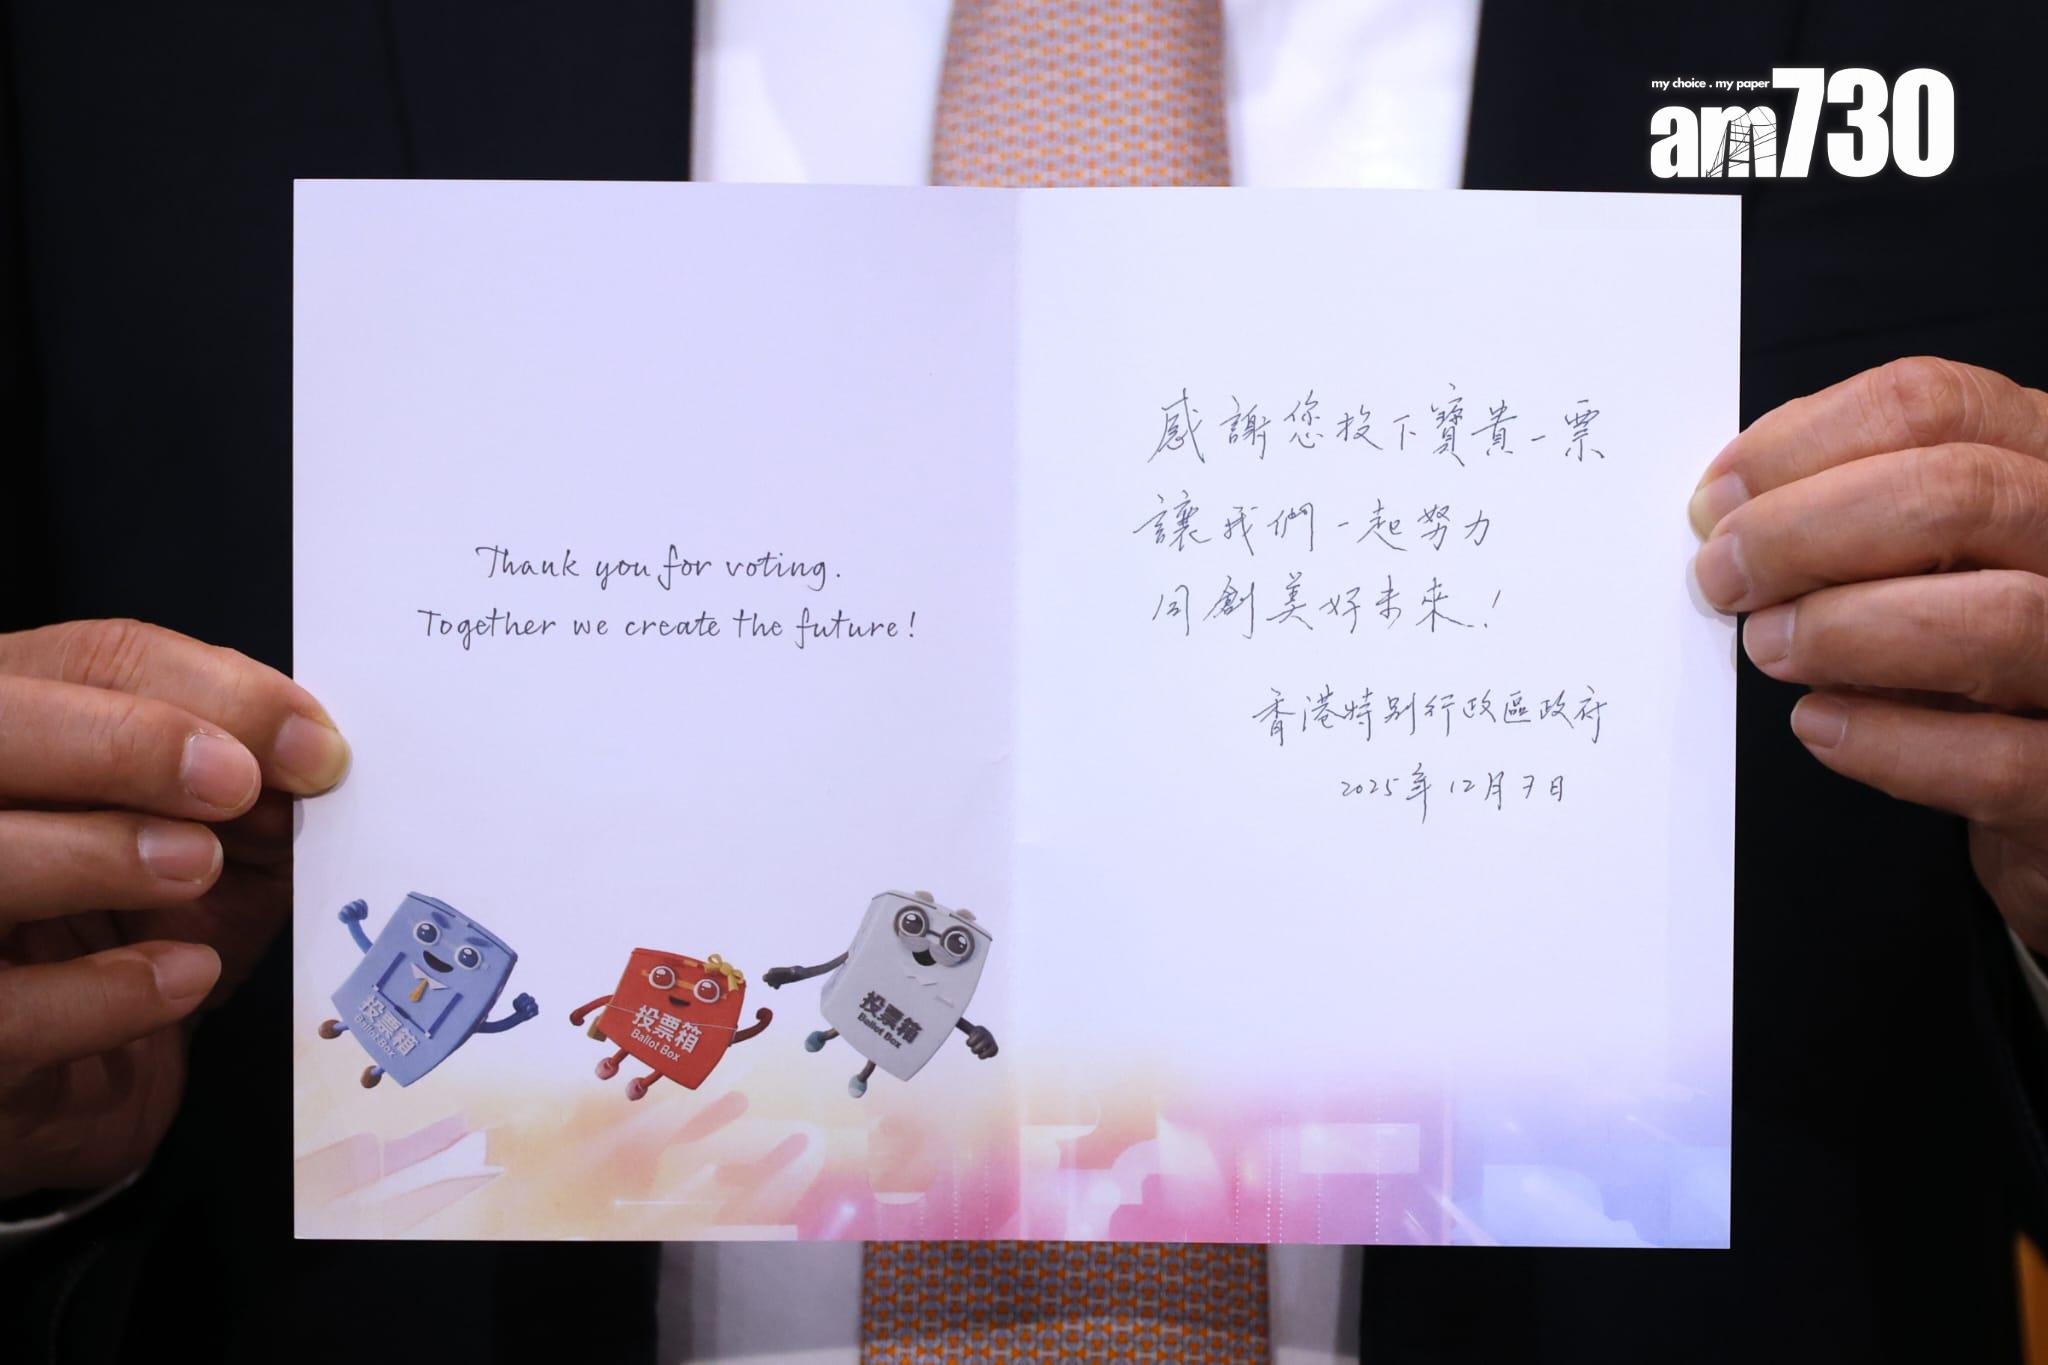 my choice . my paper
am730
Thank you for voting.
Together we create the future!
感謝您投下寶貴一票
讓我們一起努力
同創美好未來！
香港特別行政區政府
2025年12月7日
投票箱
Ballot Box
投票箱
Ballot Box
投票箱
Ballot Box